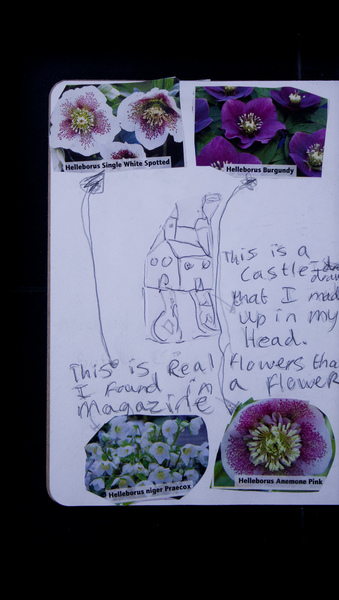 Helleborus Single White Spotted
Helleborus Burgundy
This is a
Castle
that I mad
up in my
Head.
This is Real flowers tha
I found in a flower
magazine
Helleborus niger Praecox
Helleborus Anemone Pink